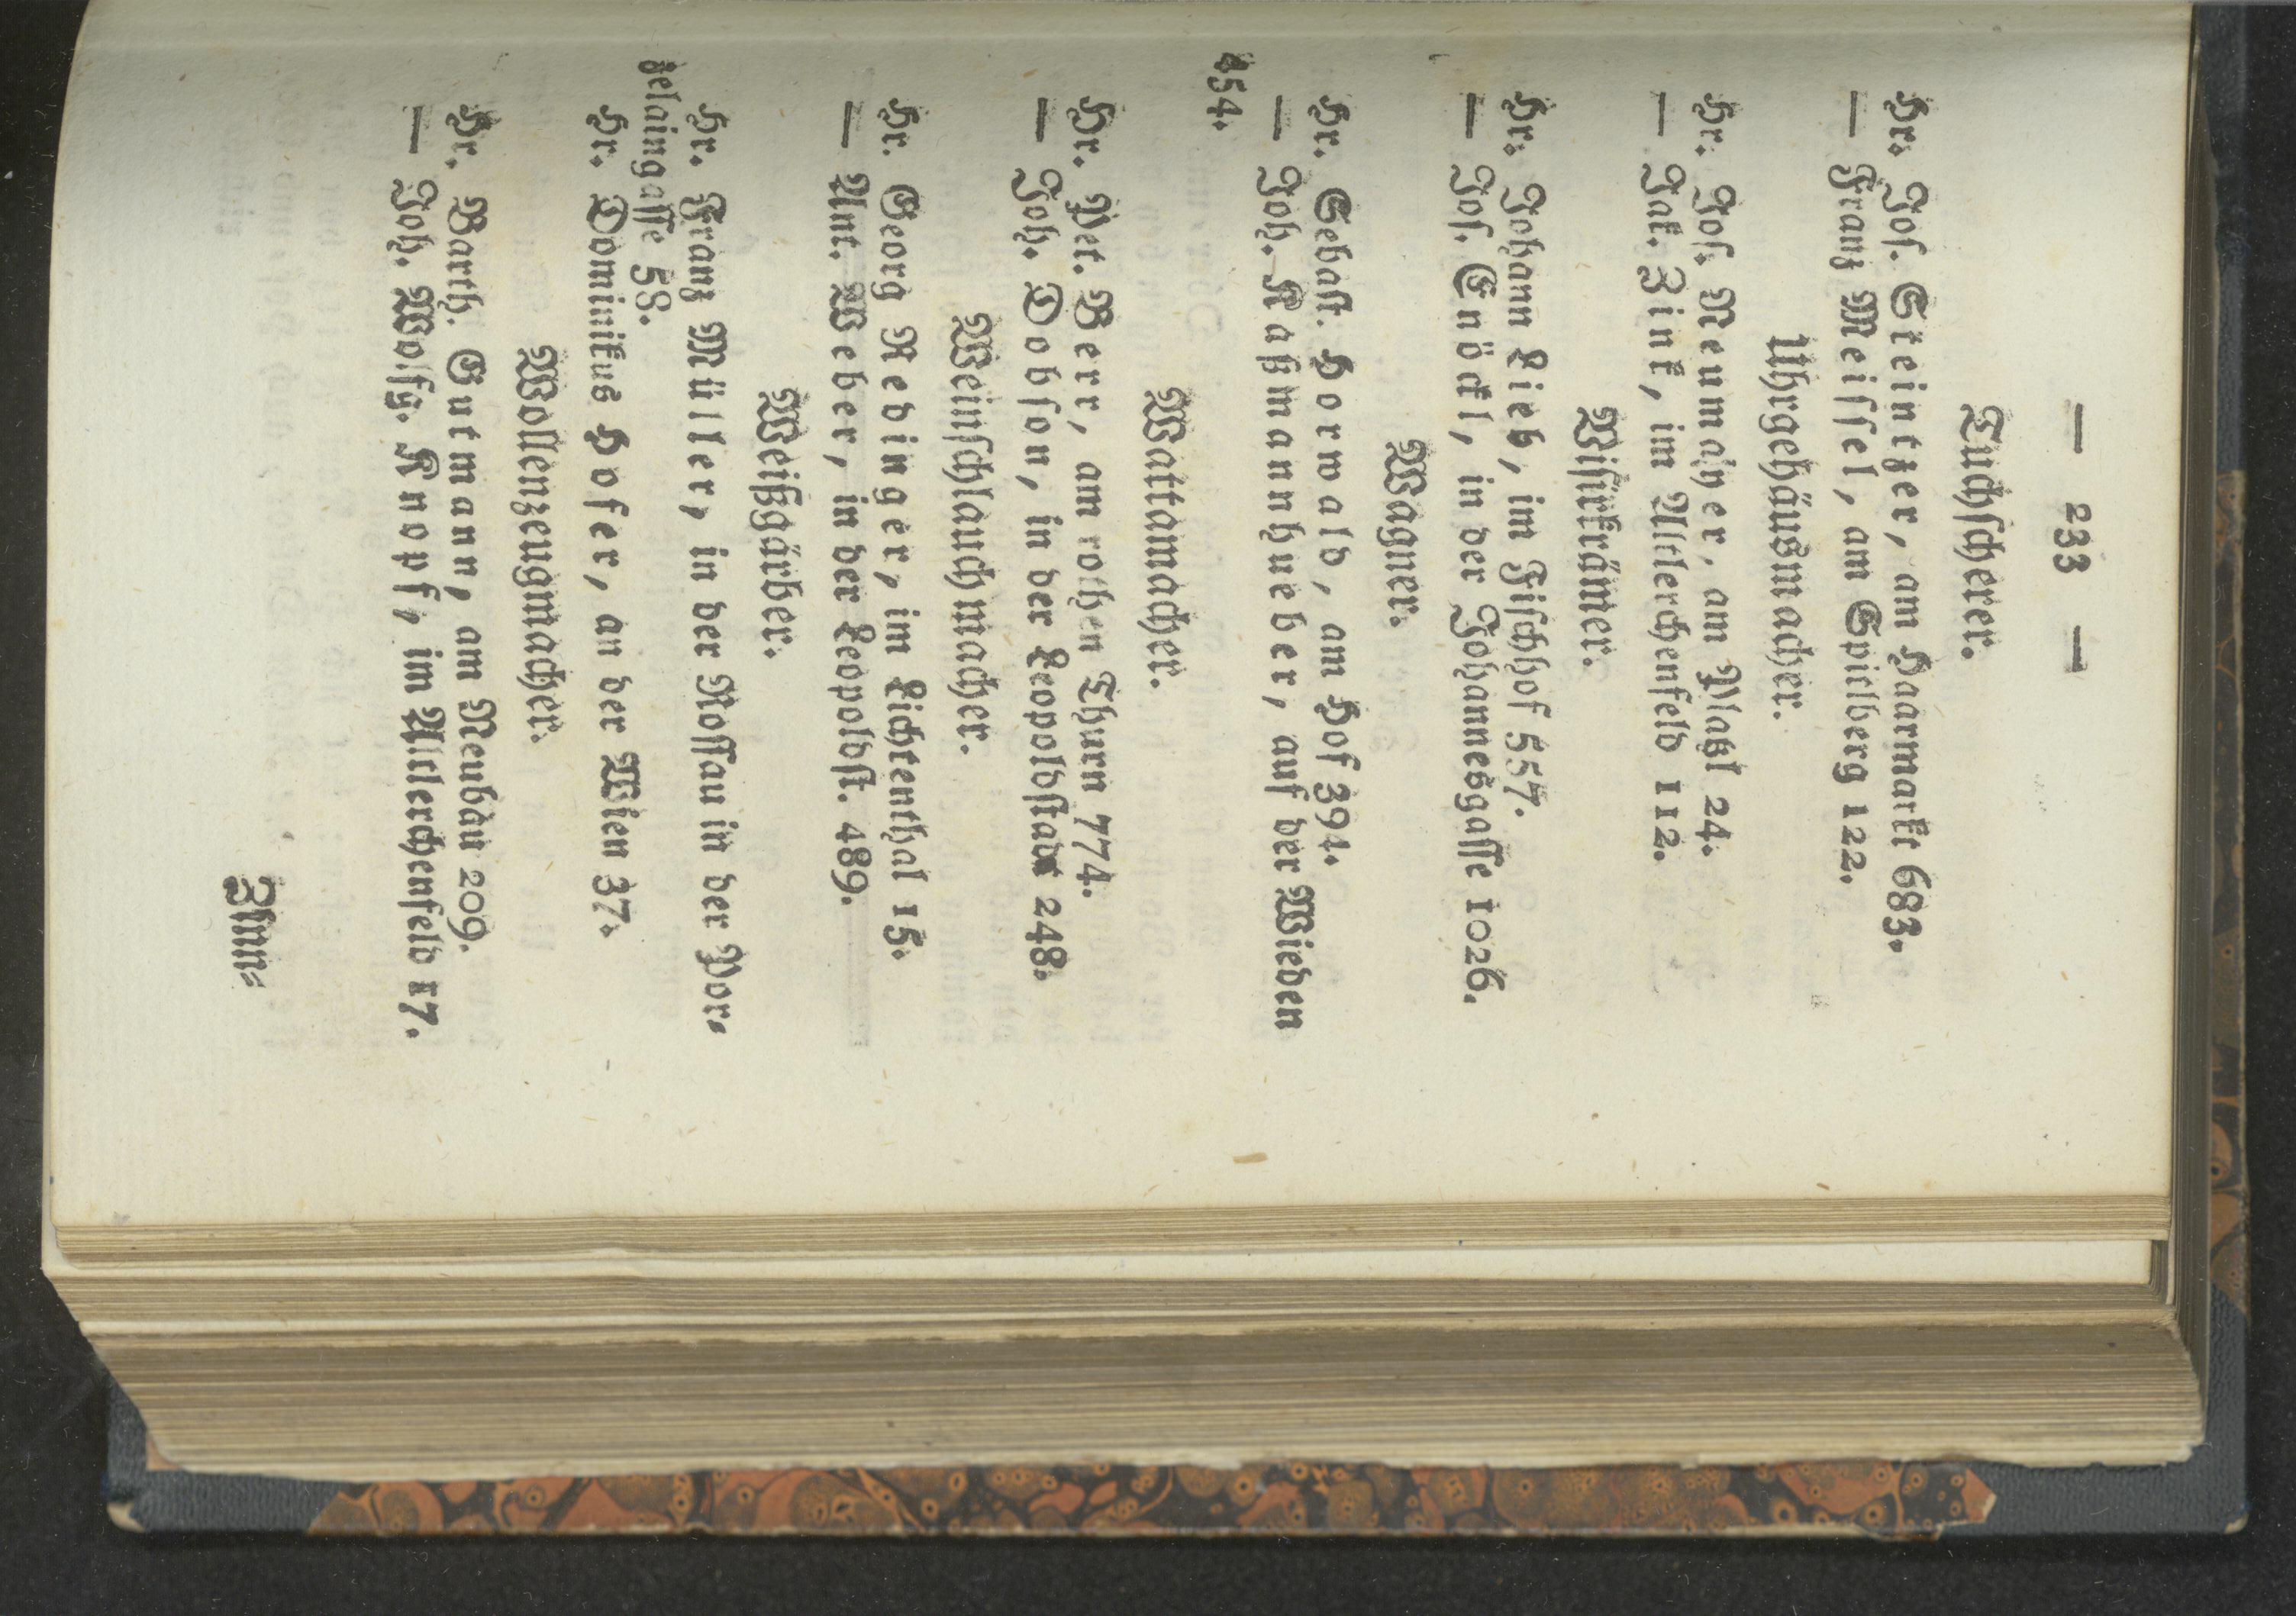 — 233 —
Tuchſcherer.
Hr. Joſ. Steintzer, am Haarmarkt 683.
— Franz Meiſſel, am Spilberg 122.
Uhrgehäusmacher.
Hr. Joſ. Neumayer, am Platzl 24.
— Jak. Zink, im Altlerchenfeld 112.
Viſirkrämer.
Hr. Johann Lieb, im Fiſchhof 557.
— Joſ. Enöckl, in der Johannesgaſſe 1026.
Wagner.
Hr. Sebaſt. Horwald, am Hof 394.
— Joh. Raßmannhueber, auf der Wieden
454.
Wattamacher.
Hr. Pet. Berr, am rothen Thurn 774.
— Joh. Dobſon, in der Leopoldſtadt 248.
Weinſchlauchmacher.
Hr. Georg Redinger, im Lichtenthal 15.
— Ant. Weber, in der Leopoldſt. 489.
Weißgärber.
Hr. Franz Müller, in der Roſſau in der Por-
zelaingaſſe 58.
Hr. Dominikus Hofer, an der Wien 37.
Wollenzeugmacher.
Hr. Barth. Gutmann, am Neubau 209.
— Joh. Wolfg. Knopf, im Altlerchenfeld 17.
Zſmin-